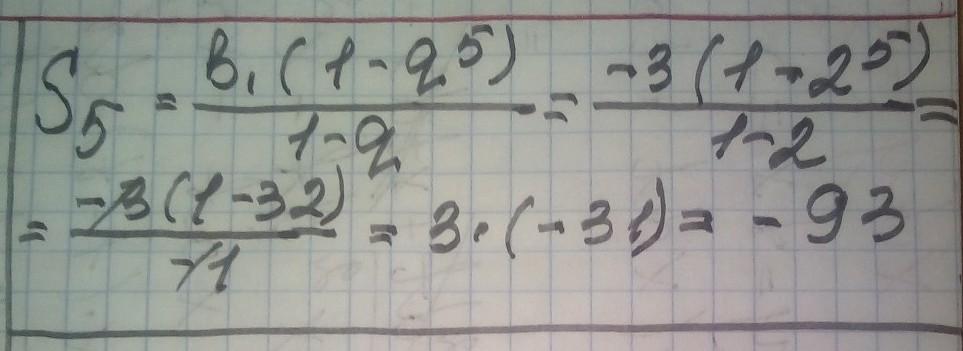 S₅ = b₁(1-q⁵)/1-q = -3(1-2⁵)/1-2 =
= -3(1-32)/-1 = 3·(-31) = -93